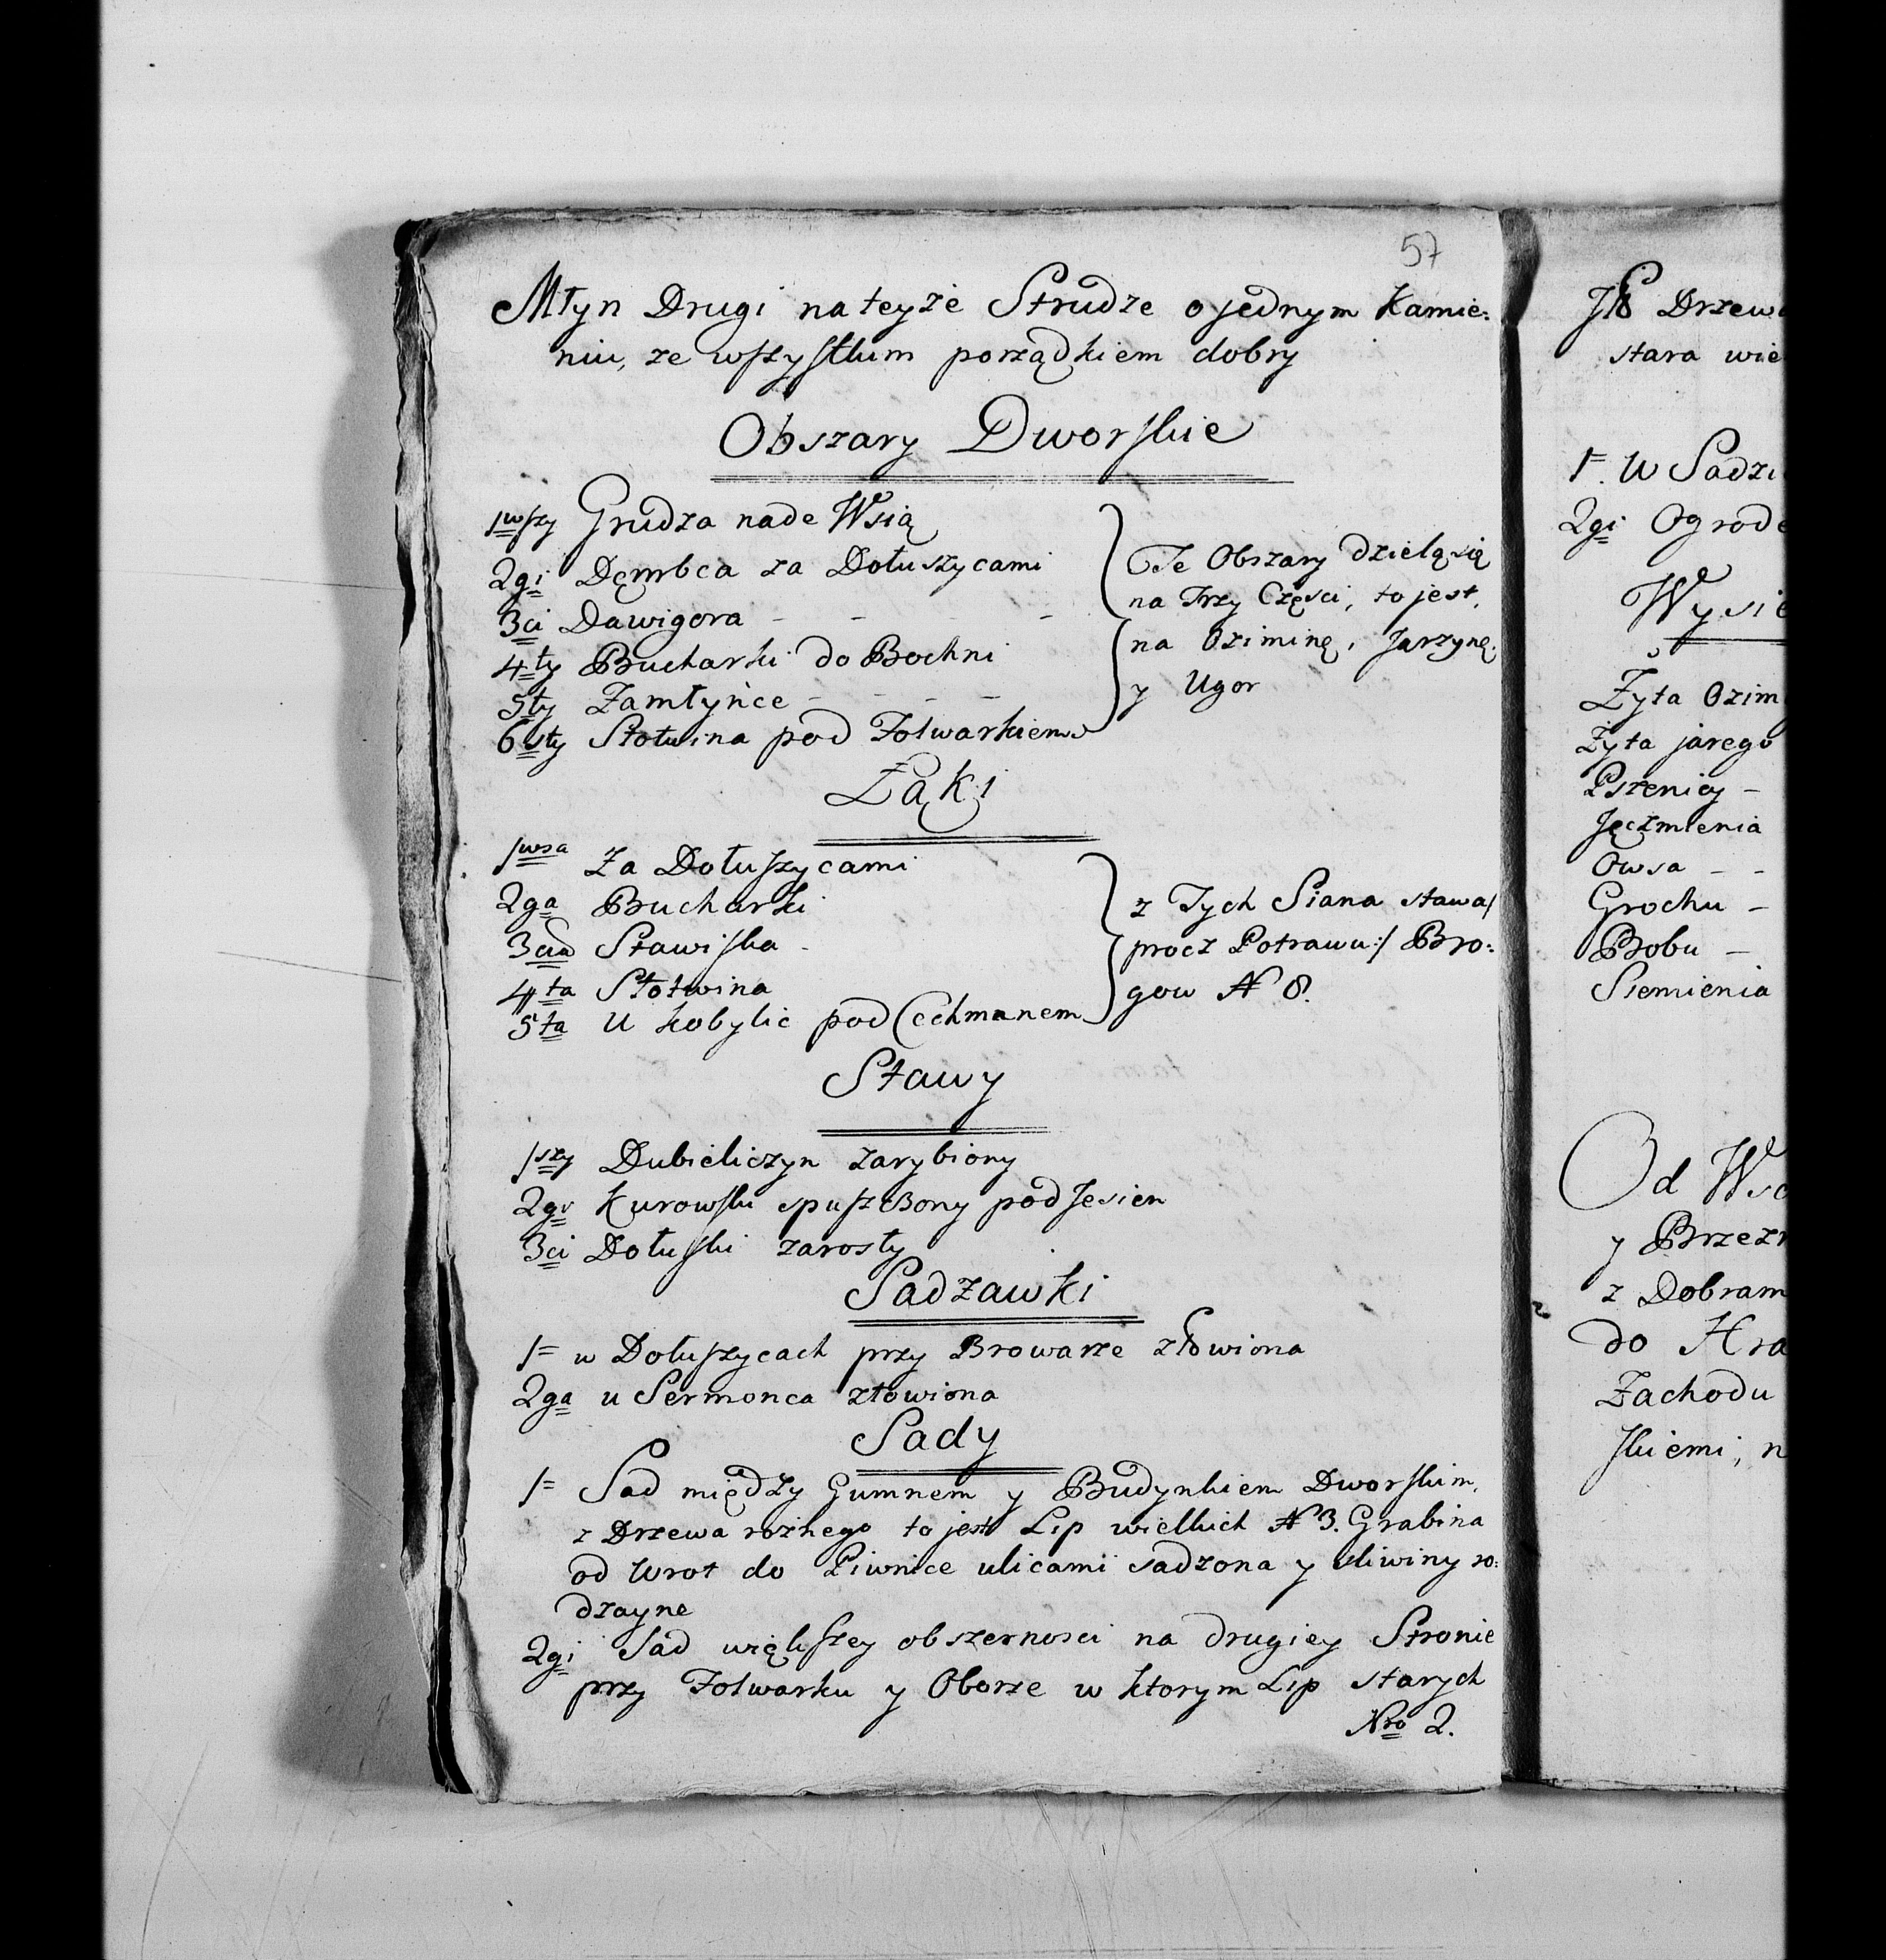 57
Młyn Drugi na teyże Strudze o jednym Kamie:
niu, ze wszystkim porządkiem dobry
Obszary Dworskie
1wszy Grudza nade Wsią
2gi Dębca za Dołuszycami
3ci Dawigora - - -
4ty Bucharki do Bochni
5ty Zamłyńce - - - -
6sty Słotwina pod Folwarkiem
Te Obszary dzielą się
na Trzy Części, to jest,
na Oziminę, Jarzynę,
y Ugor
Łąki
1wsa Za Dołuszycami
2ga Bucharki
3cia Stawiska -
4ta Słotwina
5ta U Kobylic pod Cechmanem
z Tych Siana stawa/
procz Potrawu:/ Bro:
gow N 8.
Stawy
1szy Dubieliczyn zarybiony
2gi Kurowski spuszczony pod Jesien
3ci Dołuski zarosły
Sadzawki
1= w Dołuszycach przy Browarze złowiona
2ga u Sermonca złowiona
Sady
1= Sad między Gumnem y Budynkiem Dworskim,
z Drzewa rożnego to jest Lip wielkich N 3. Grabina
od Wrot do Piwnice ulicami sadzona y sliwiny ro:
dzayne
2gi Sad większey obszernosci na drugiey Stronie
przy Folwarku y Oborze w ktorym Lip starych
Nro 2.
Drzew
stara wie
1=. W Sadzi
2gi Ogrode
Wysie
Żyta Ozim
Żyta jarego
Pszenicy -
Jęczmienia
Owsa - -
Grochu -
Bobu -
Siemienia
Od Wsc
y Brzezn
z Dobram
do Hra
Zachodu
skiemi, n